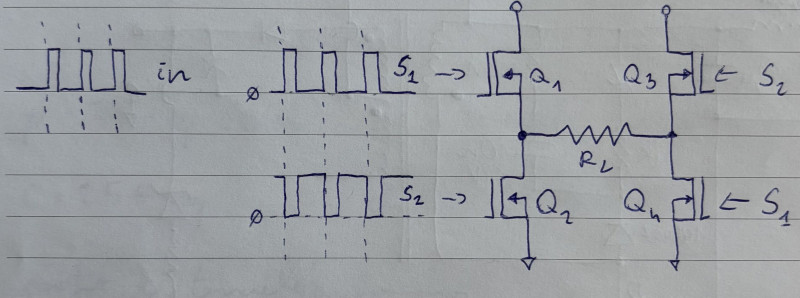 in
ø S₁ → Q₁ Q₃ ← S₂
R_L
ø S₂ → Q₂ Q₄ ← S₁